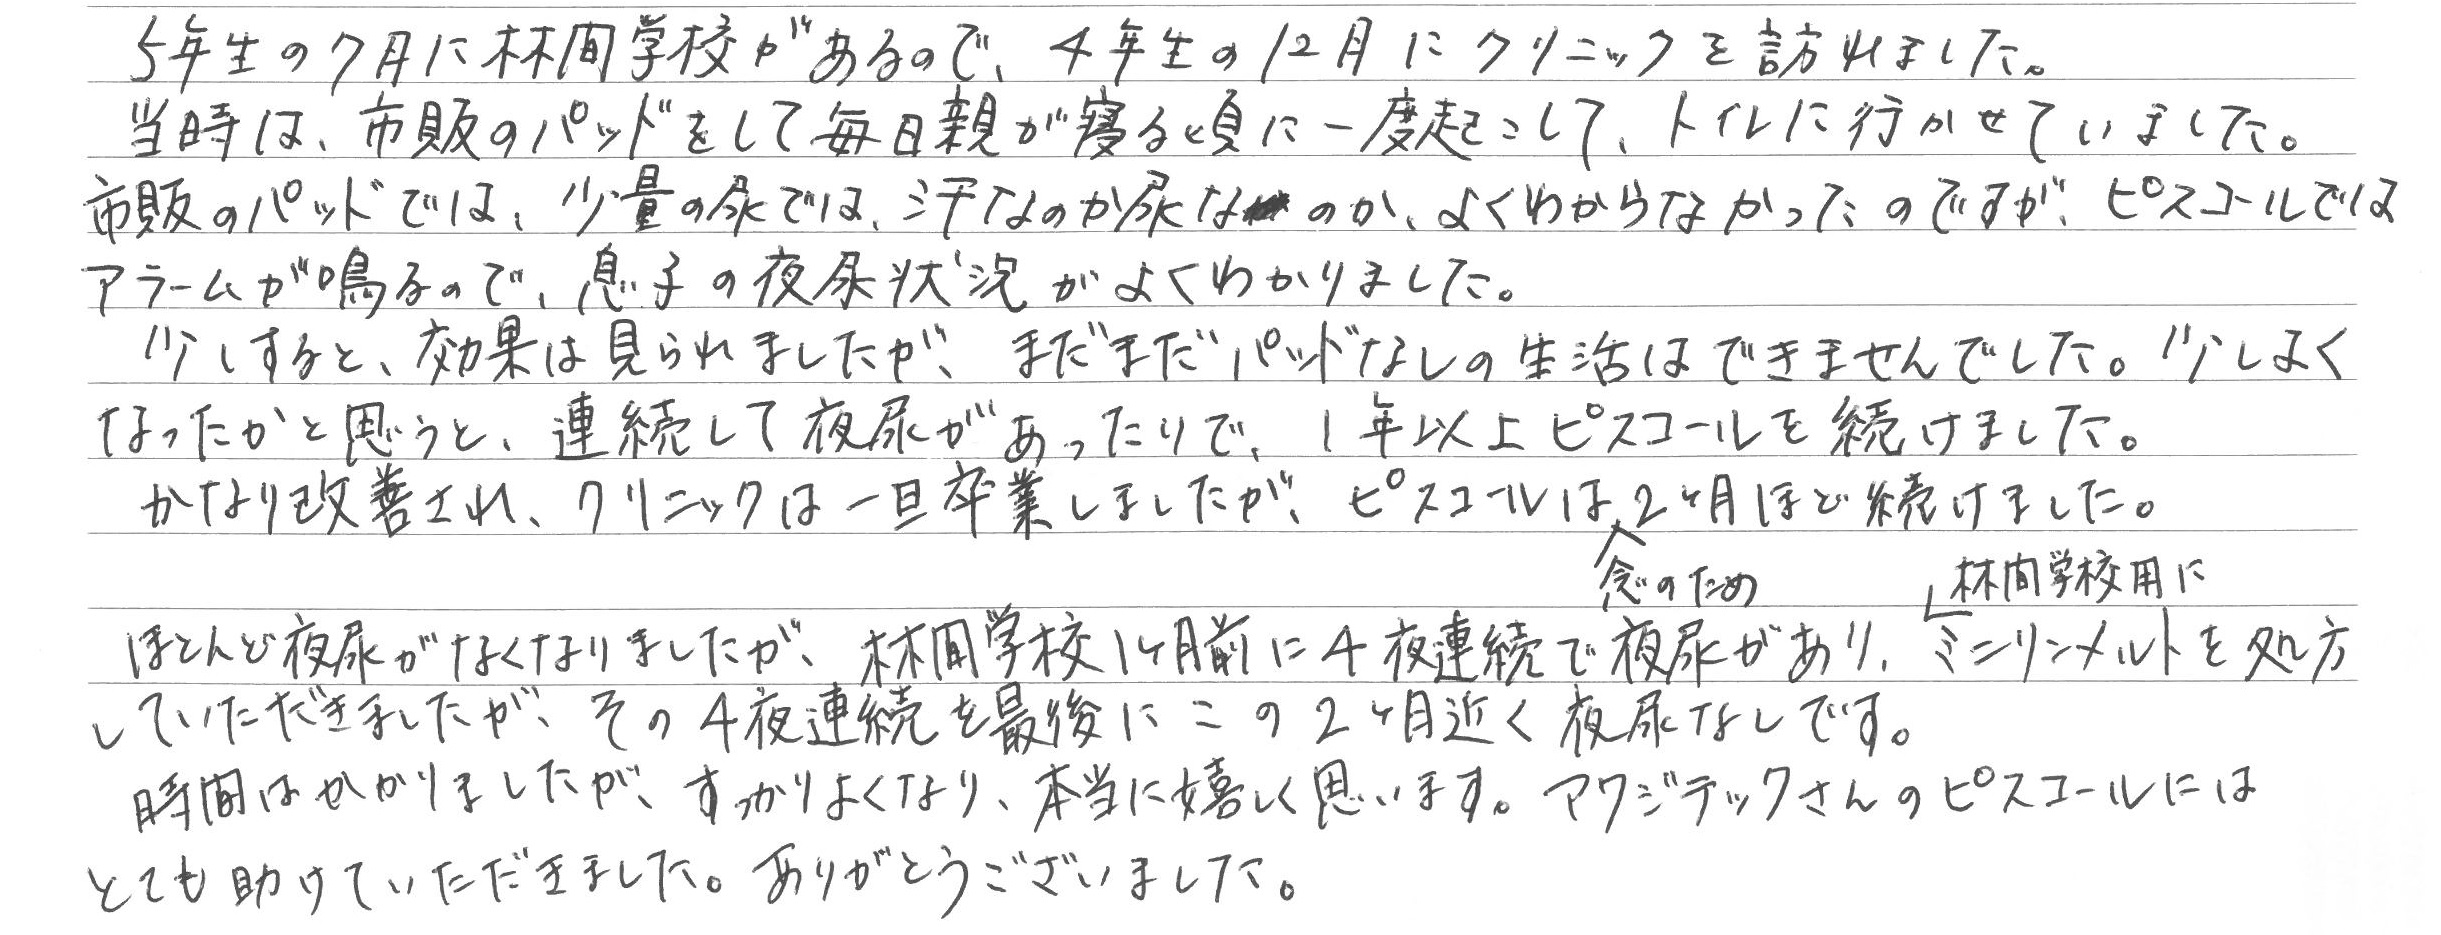 5年生の7月に林間学校があるので、4年生の12月にクリニックを訪れました。
当時は、市販のパッドをして毎日親が寝る頃に一度起こして、トイレに行かせていました。
市販のパッドでは、少量の尿では、汗なのか尿なのか、よくわからなかったのですが、ピスコールでは
アラームが鳴るので、息子の夜尿状況がよくわかりました。
少しすると、効果は見られましたが、まだまだパッドなしの生活はできませんでした。少しよく
なったかと思うと、連続して夜尿があったりで、1年以上ピスコールを続けました。
かなり改善され、クリニックは一旦卒業しましたが、ピスコールは2ヶ月ほど続けました。
念のため 林間学校用に
ほとんど夜尿がなくなりましたが、林間学校1ヶ月前に4夜連続で夜尿があり、ミニリンメルトを処方
していただきましたが、その4夜連続を最後にこの2ヶ月近く夜尿なしです。
時間はかかりましたが、すっかりよくなり、本当に嬉しく思います。アワジテックさんのピスコールには
とても助けていただきました。ありがとうございました。